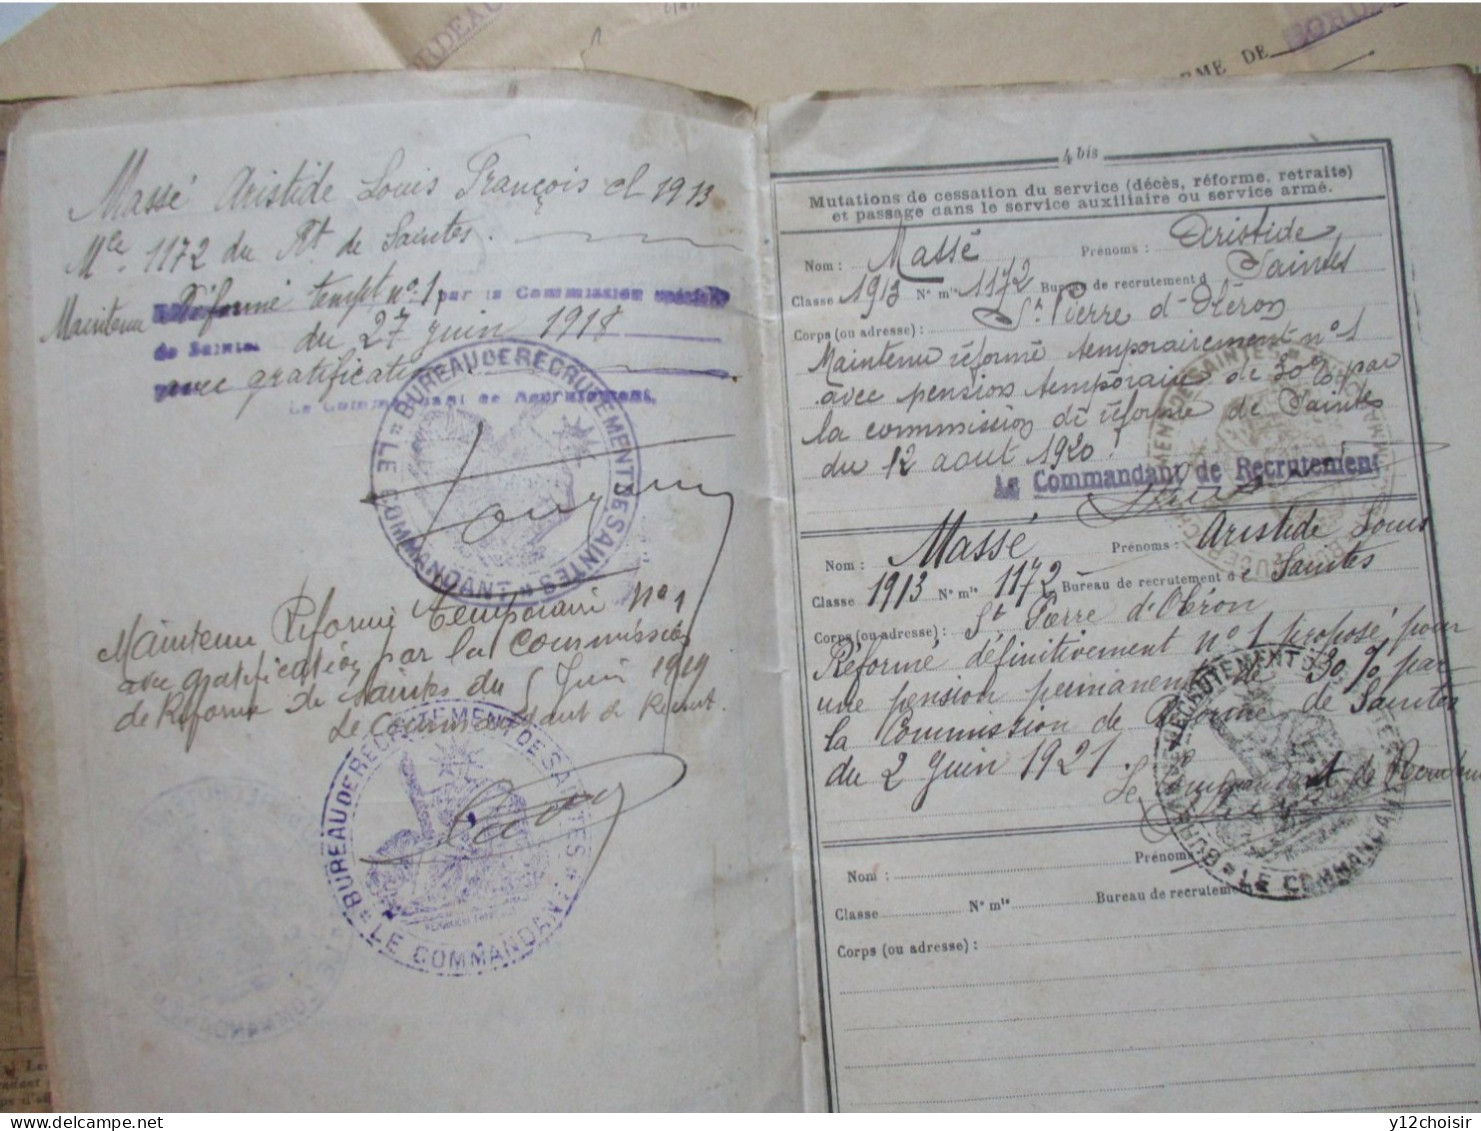 BORDEAUX
EME DE
Massé Aristide Louis François cl 1913
Mle. 1172 du Rt de Saintes.
Maintenu Réformé tempt no. 1 par la Commission spéciale
de Saintes du 27 juin 1918
avec gratification
Le Commandant de Recrutement,
BUREAU DE RECRUTEMENT DE SAINTES
LE COMMANDANT
Maintenu Réformé temporaire No 1
avec gratification par la Commission
de Réforme de Saintes du 5 Juin 1919
Le Commandant de Recrut.
BUREAU DE RECRUTEMENT DE SAINTES
LE COMMANDANT
4 bis
Mutations de cessation du service (décès, réforme, retraite)
et passage dans le service auxiliaire ou service armé.
Nom : Massé Prénoms : Aristide
Classe 1913 N° mle 1172 Bureau de recrutement d Saintes
Corps (ou adresse) : St Pierre d'Oléron
Maintenu réformé temporairement n° 1
avec pension temporaire de 30% par
la commission de réforme de Saintes
du 12 août 1920.
Le Commandant de Recrutement
Nom : Massé Prénoms : Aristide Louis
Classe 1913 N° mle 1172 Bureau de recrutement de Saintes
Corps (ou adresse) : St Pierre d'Oléron
Réformé définitivement N° 1 proposé pour
une pension permanente de 30% par
la Commission de Réforme de Saintes
du 2 Juin 1921.
Le Commandant de Recrutem
BUREAU DE RECRUTEMENT DE SAINTES
LE COMMANDANT
Nom : Prénoms
Classe N° mle Bureau de recrutement
Corps (ou adresse) :
y12choisir